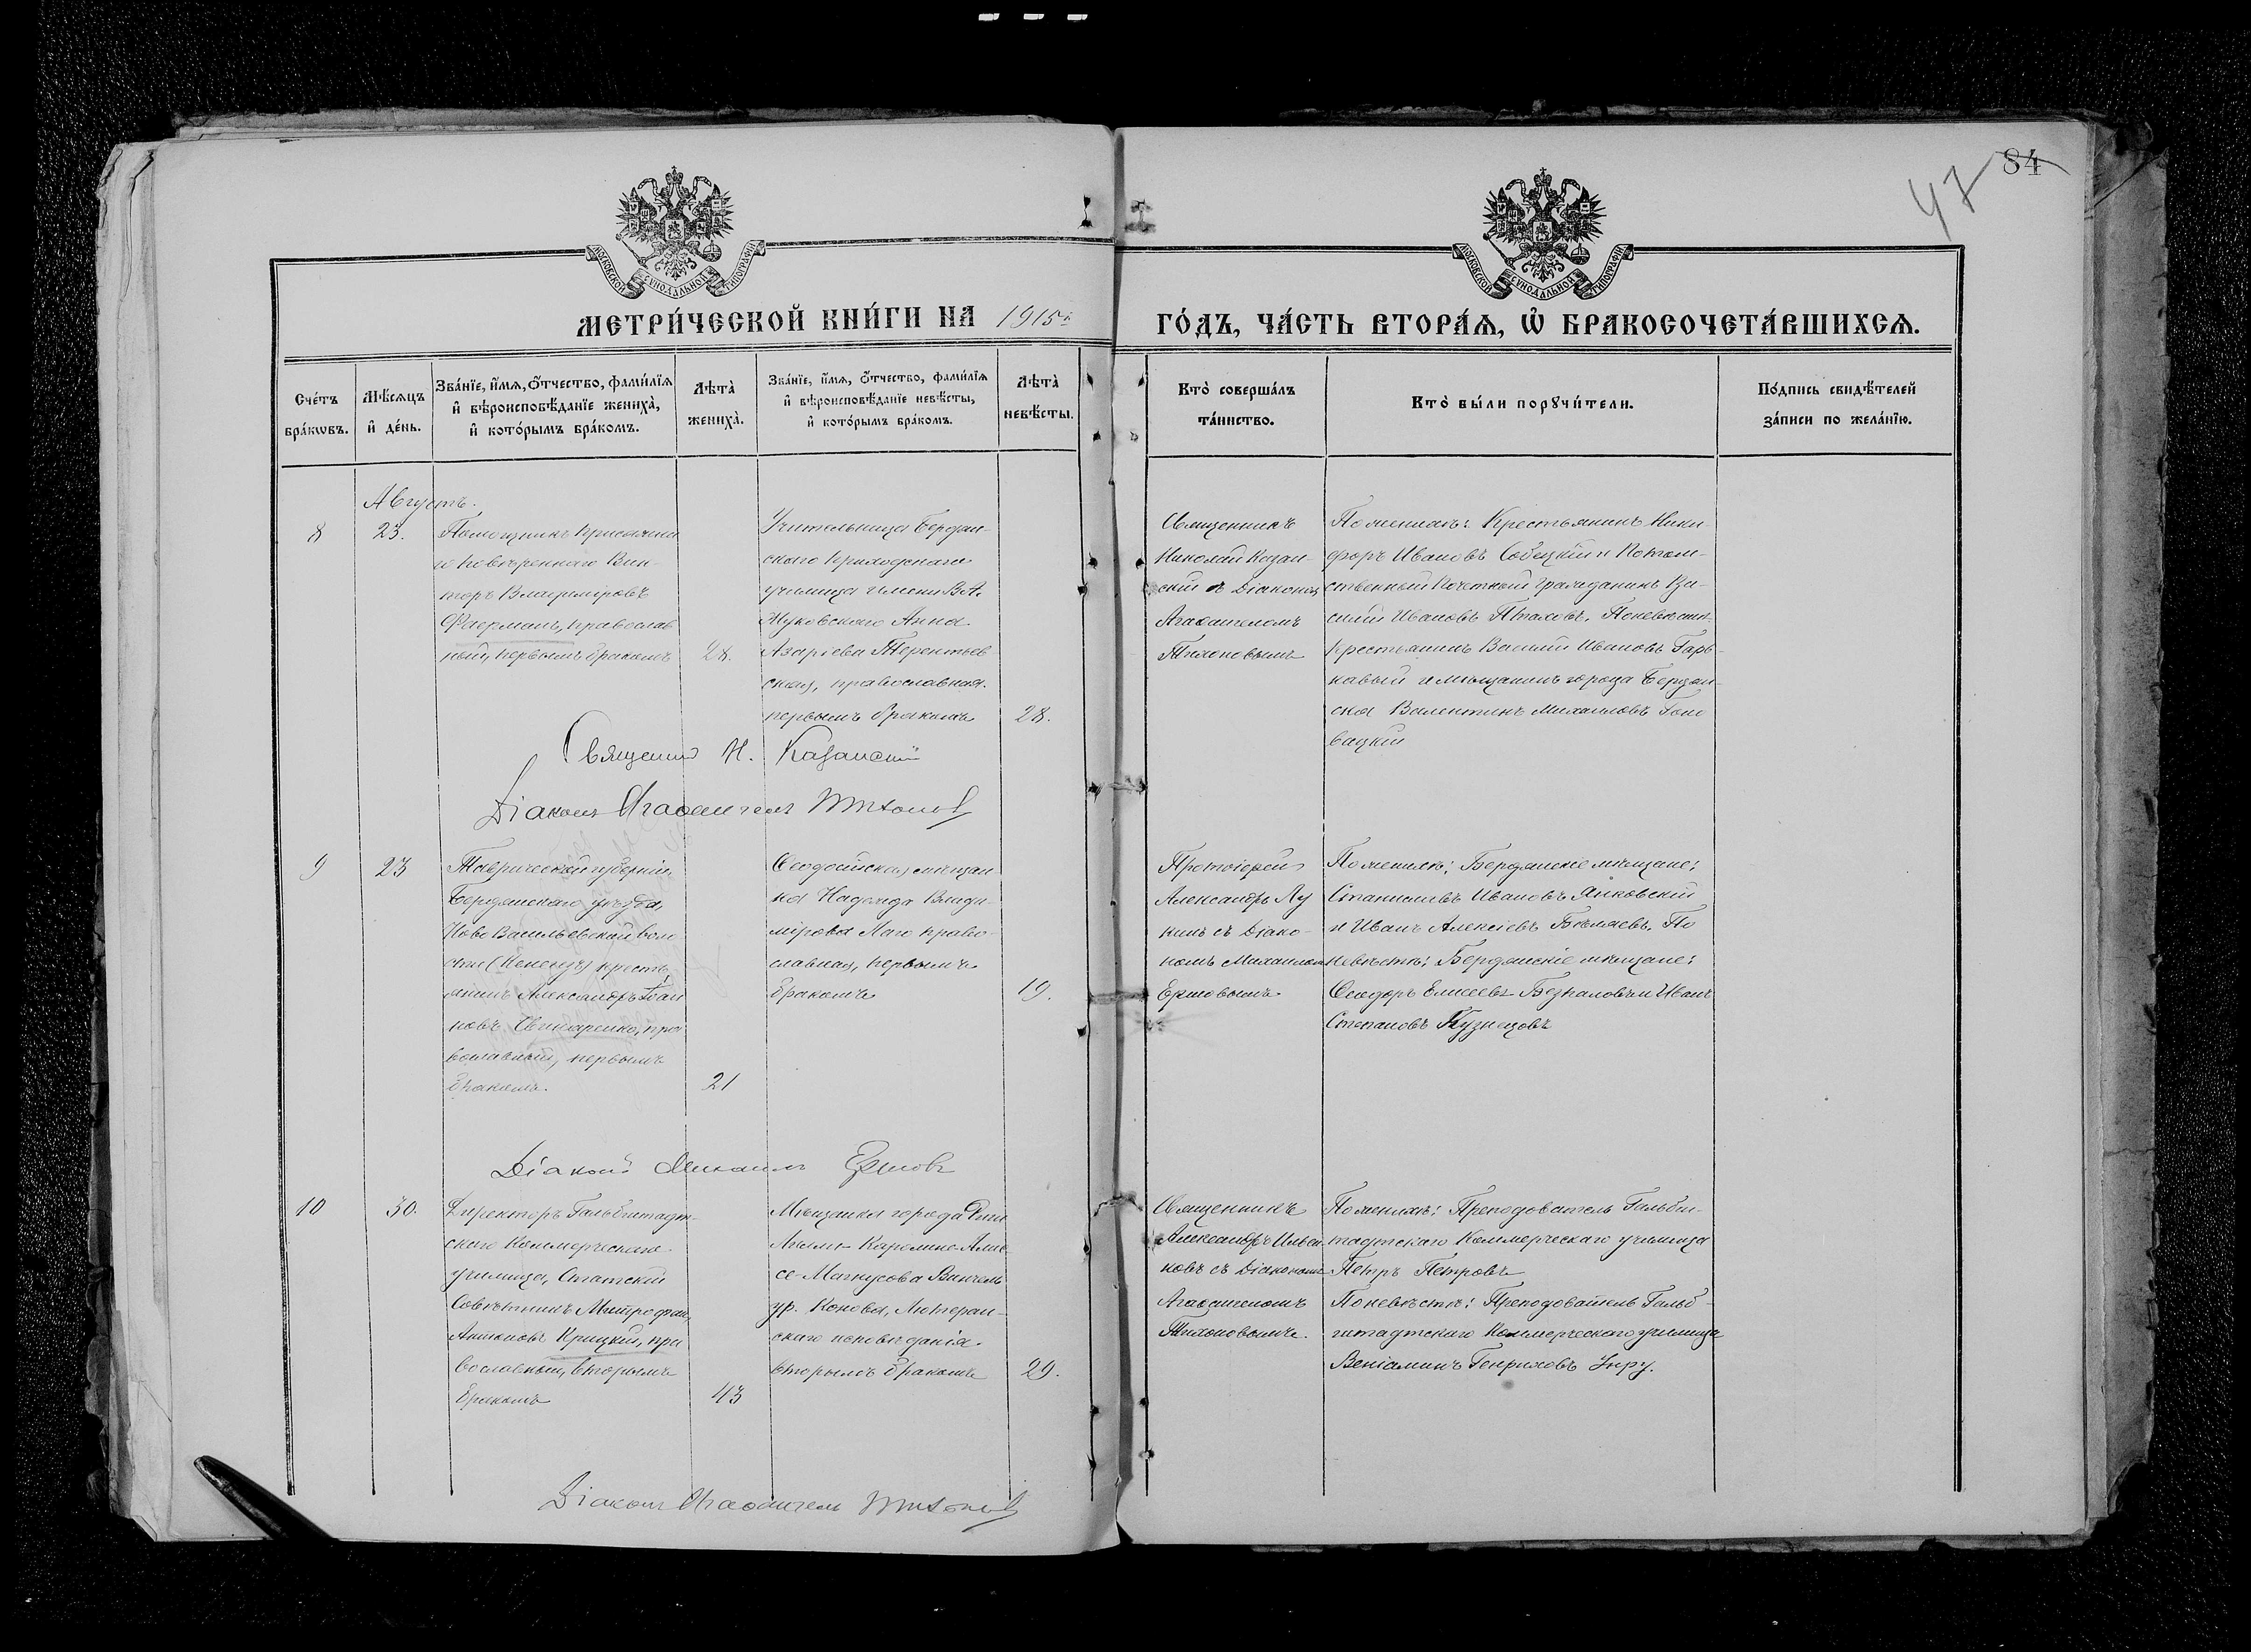 84
47
МОСКОВСКОЙ СѴНОДАЛЬНОЙ ТИПОГРАФІИ
МОСКОВСКОЙ СѴНОДАЛЬНОЙ ТИПОГРАФІИ
МЕТРИ́ЧЕСКОЙ КНИ́ГИ НА 1915й
ГО́ДЪ, ЧА́СТЬ ВТОРА́Ѧ, Ѡ҆ БРАКОСОЧЕТА́ВШИХСѦ.
Сче́тъ
бра́кѡвъ.
Мѣ́сѧцъ
и҆ де́нь.
Зва́нїе, и҆́мѧ, ѻ҆́тчество, фами́лїѧ
и҆ вѣроисповѣ́данїе жениха̀,
и҆ кото́рымъ бра́комъ.
Лѣта̀
жениха̀.
Зва́нїе, и҆́мѧ, ѻ҆́тчество, фами́лїѧ
и҆ вѣроисповѣ́данїе невѣ́сты,
и҆ кото́рымъ бра́комъ.
Лѣта̀
невѣ́сты.
Кто̀ соверша́лъ
та́инство.
Кто̀ бы́ли порꙋчи́тели.
По́дпись свидѣ́телей
за́писи по жела́нїю.
Августъ.
8
23.
Помощникъ присяжна
го повѣреннаго Вик-
торъ Владиміровъ
Фаерманъ, православ
ный, первымъ бракомъ
28.
Учительница Бердян-
скаго приходскаго
училища имени В.А.
Жуковскаго Анна
Азаріева Терентьев-
ская, православная.
первымъ бракомъ
28.
Священникъ
Николай Казан-
скій съ Діакономъ
Агаѳангеломъ
Тихоновымъ
По женихѣ: Крестьянинъ Ники-
форъ Ивановъ Собецкій и Потом-
ственный Почетный Гражданинъ Ва-
силій Ивановъ По невѣстѣ:
Крестьянинъ Василій Ивановъ Гарь-
кавый и мѣщанинъ города Бердян-
ска Валентинъ Михаиловъ
вацкій
Священник Н. Казанскій
Діаконъ Агаѳангелъ Тихоновъ
9
23
Таврической губерніи,
Бердянскаго уѣзда,
Ново Васильевской воло
сти крестья
янинъ Александръ Іоан
новъ Свинаренко, пра
вославный, первымъ
бракомъ.
21
Ѳеодосійская мѣщан-
ка Надежда Влади-
мірова право-
славная, первымъ
бракомъ
19.
Протоіерей
Александръ Лу
кинъ съ Діако-
номъ Михаиломъ
Ершовымъ
По женихѣ: Бердянскіе мѣщане:
Станиславъ Ивановъ Янковскій
и Иванъ Алексіевъ Бѣляевъ. По
невѣстѣ: Бердянскіе мѣщане:
Ѳеодоръ Елисеевъ и Иванъ
Степановъ Кузнецовъ
Діаконъ Михаилъ Ершовъ
10
30.
Директоръ Гальбштадт-
скаго Коммерческаго
училища, Статскій
Совѣтникъ Митрофанъ
Антоновъ Крицкій, пра
вославный, вторымъ
бракомъ
43
Мѣщанка города Риги
Каролине Али-
се Магнусова
ур. Лютеран-
скаго исповѣданія.
вторымъ бракомъ
29.
Священникъ
Александръ Ильин-
ковъ съ Діакономъ
Агаѳангеломъ
Тихоновымъ.
По женихѣ: Преподаватель Гальбш-
тадтскаго Коммерческаго училища
Петръ Петровъ
По невѣстѣ: Преподаватель Гальб-
штадтскаго Коммерческаго училища
Веніаминъ Генриховъ Унру.
Діаконъ Агаѳангелъ Тихоновъ